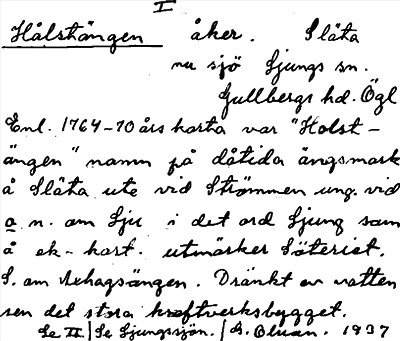 I
Hålstängen åker. Släta
nu sjö Ljungs sn.
Gullbergs hd. Ögl
Enl. 1764-70 års karta var "Holst-
ängen" namn på dåtida ängsmark
å Släta ute vid Strömmen ung. vid
a n. om Lju i det ord Ljung som
å ek-kart. utmärker Säteriet.
S. om Axhagsängen. Dränkt av vatten
sen det stora kraftverksbygget.
Se II / Se Ljungssjön. / G. 1937